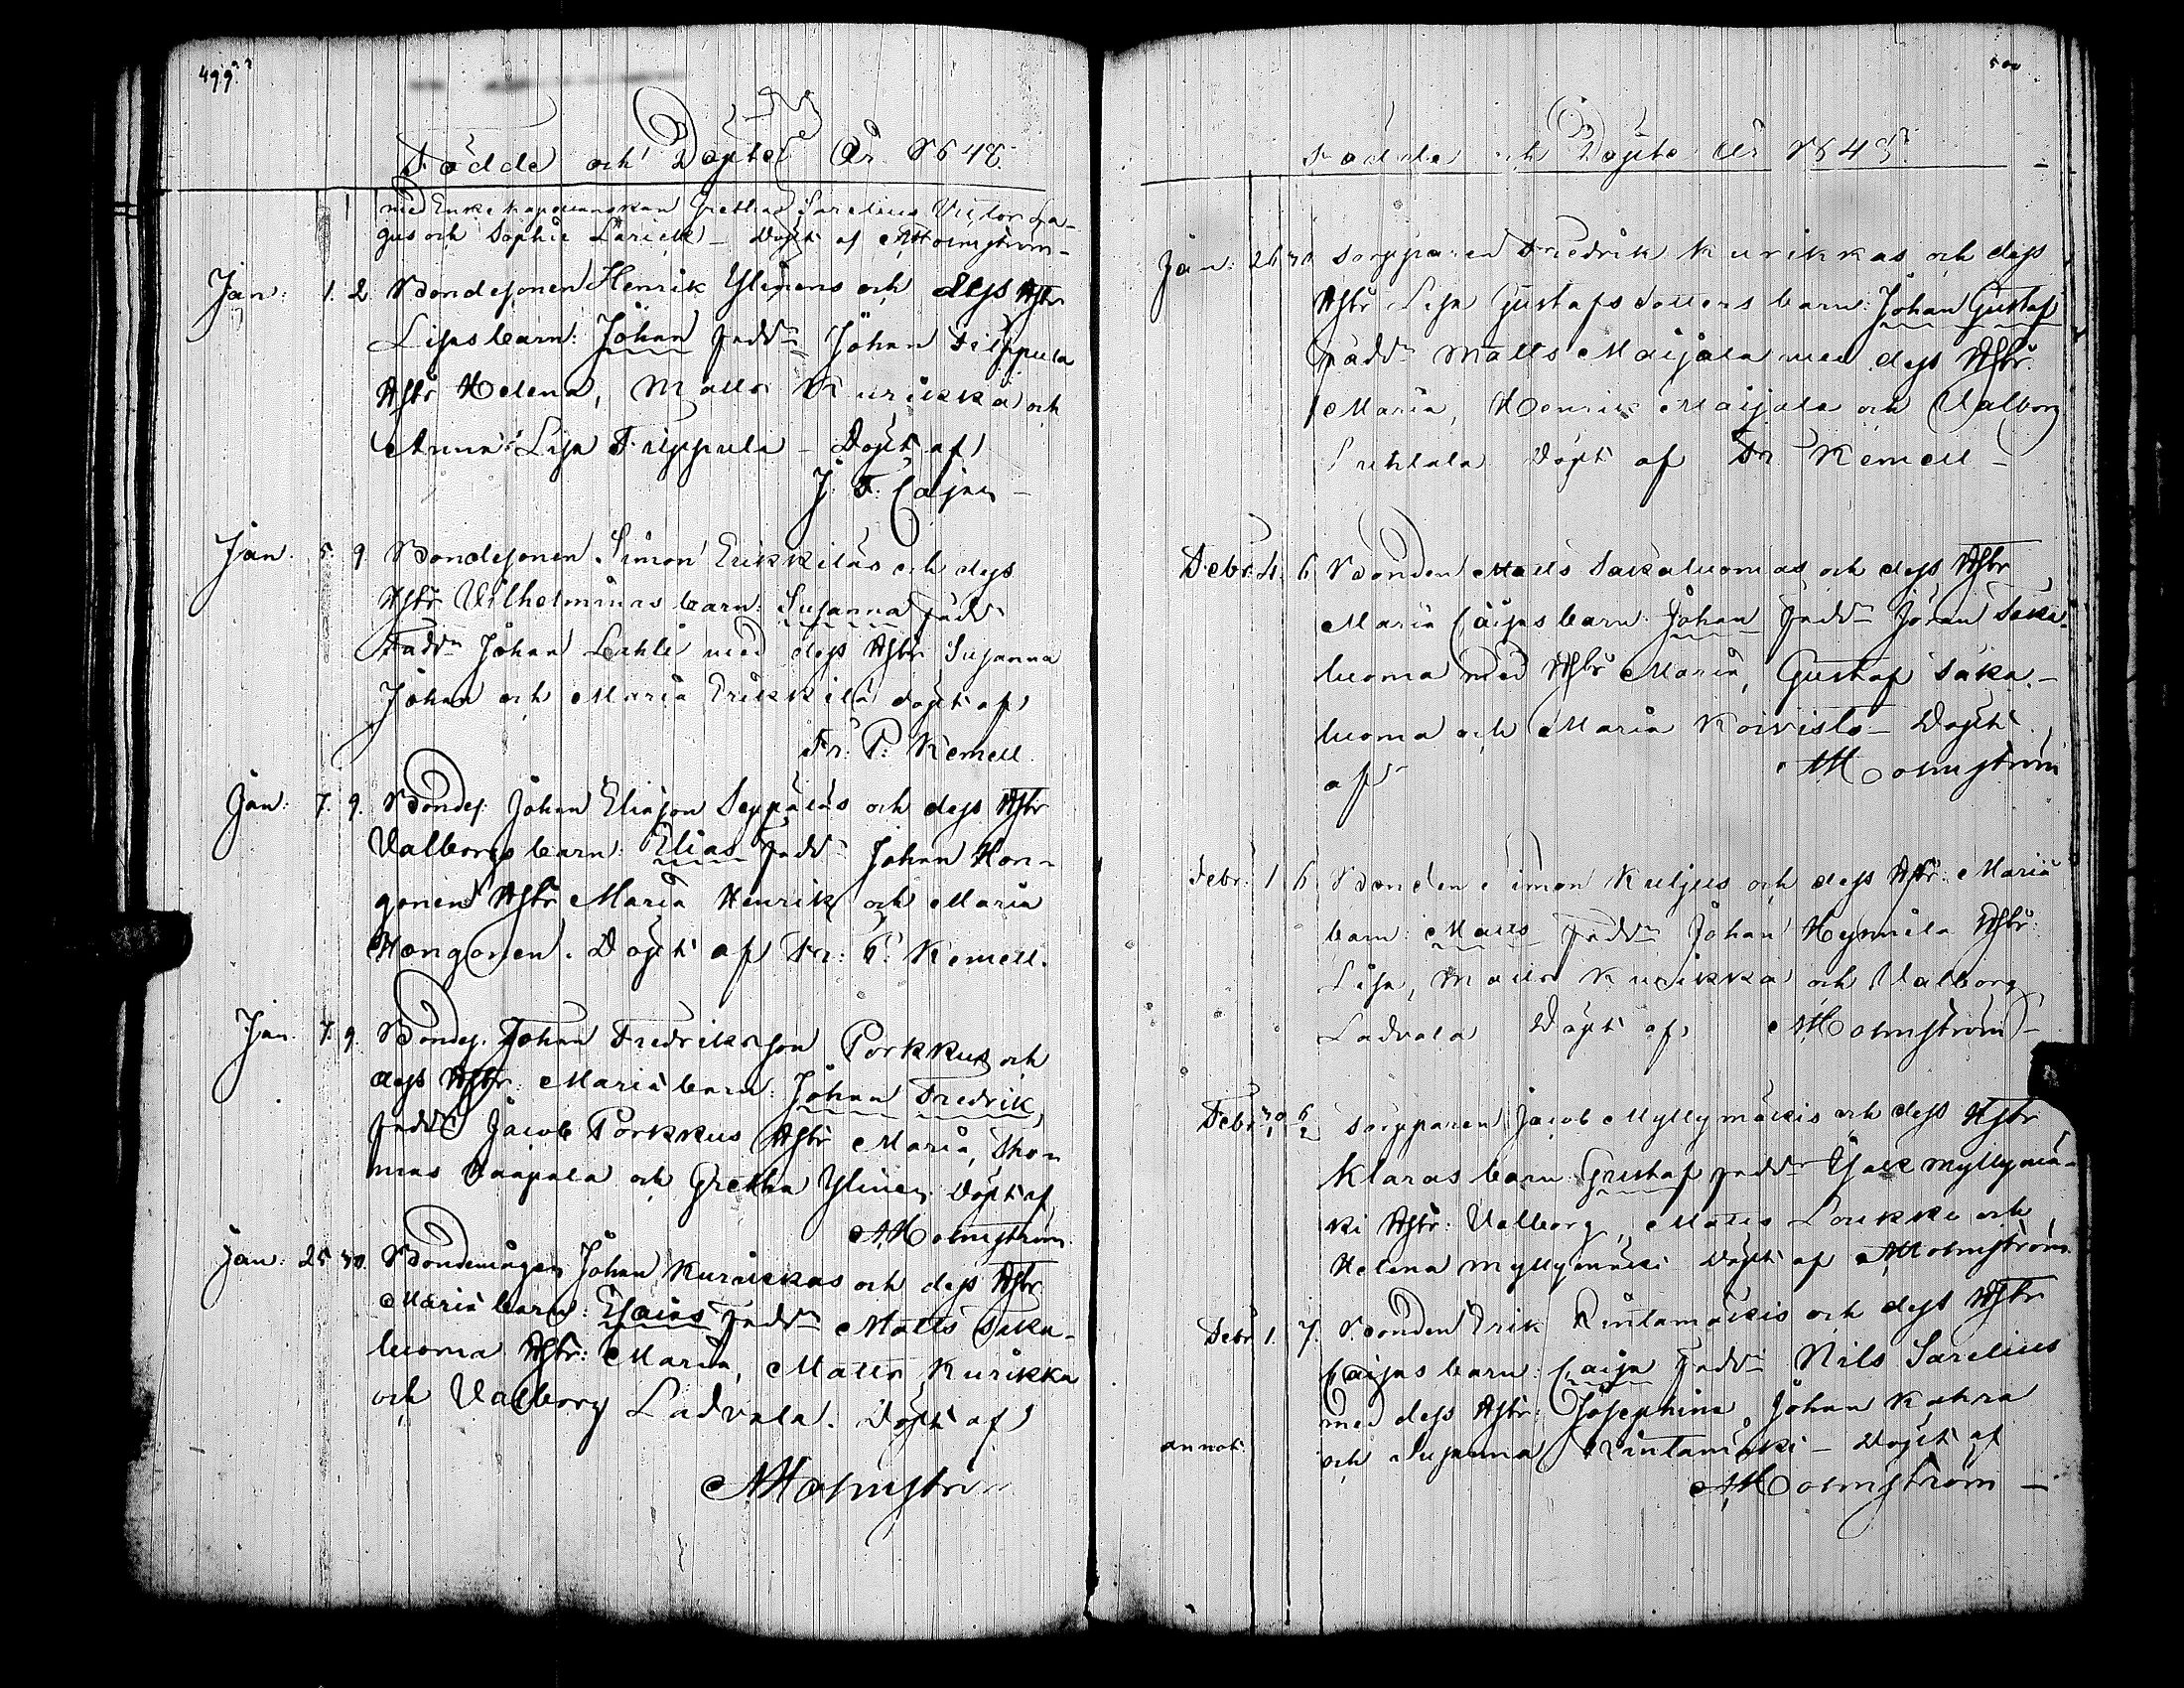 499
Födde och Döpte År 1848.
med Enke Kapellanskan Gretha Sarelius Victor
gus och Sophie Lärick – Döpt af AHolmström –
Jan: 1. 2 Bondesonen Henrik Ylinens och dess Hstr
Lisas barn: Johan Fadd: Johan Filppula
Hstr Helena, Matts Kurikka och
Anna Lisa Filppula – Döpt af
J. F. Cajan –
Jan. 5. 9. Bondesonen Simon Erikkiläs och dess
Hstr Vilhelminas barn: Susanna Fadd
Fadd: Johan Lehti med dess Hstr Susanna
Johan och Maria Erikkilä döpt af
Fr: P: Kemell.
Jan: 7. 9. Bondes. Johan Eliasson Seppäläs och dess Hstr
Valborgs barn: Elias Fadd: Johan Hon-
gonen Hstr Maria Henrik och Maria
Hongonen. Döpt af Fr: P: Kemell.
Jan. 7. 9. Bondes. Johan Fredriksson Porkkus och
dess Hstr: Maria barn: Johan Fredrik,
Fadd: Jacob Porkkus Hstr Maria, Tho-
mas Haapala och Gretha Ylinen Döpt af
AHolmström.
Jan: 25 30. Bondemågen Johan Kurikkas och dess Hstr
Maria barn: Esaias Fadd: Matts Saka-
luoma Hstr: Maria, Matts Kurikka
och Valborg Ladvala. Döpt af
AHolmström
500
Födde och Döpte År 1848.
Jan: 26 30 Torpparen Fredrik Kurikkas och dess
Hstr Lisa Gustafsdotters barn: Johan Gustaf
Fadd: Matts Maijala med dess Hstr.
Maria, Henrik Maijala och Valborg
Döpt af Fr Kemell –
Febr: 4. 6 Bonden Matts Sakaluomas och dess Hstr
Maria Caijas barn: Johan Fadd: Johan Saka-
luoma med Hstr Maria, Gustaf Saka-
luoma och Maria Koivisto – Döpt
af AHolmström
Febr: 1 6 Bonden Simon Kuljus och dess Hstr: Maria
barn: Matts Fadd: Johan Hynnilä Hstr:
Lisa, Matts Kurikka och Valborg
Ladvala Döpt af AHolmström –
Febr: 30/1 6/2 Torpparen Jacob Myllymäkis och dess Hstr
Klaras barn: Gustaf Fadd: Isak Myllymä-
ki Hstr: Valborg, Matts Loukko och
Helena Myllymäki Döpt af AHolmström
Febr 1. 7. Bonden Erik Rintamäkis och dess Hstr
Caijas barn: Caija Fadd: Nils Sarelius
med dess Hstr: Josephina Johan Kahra
annot. och Susanna Rintamäki – Döpt af
AHolmström –